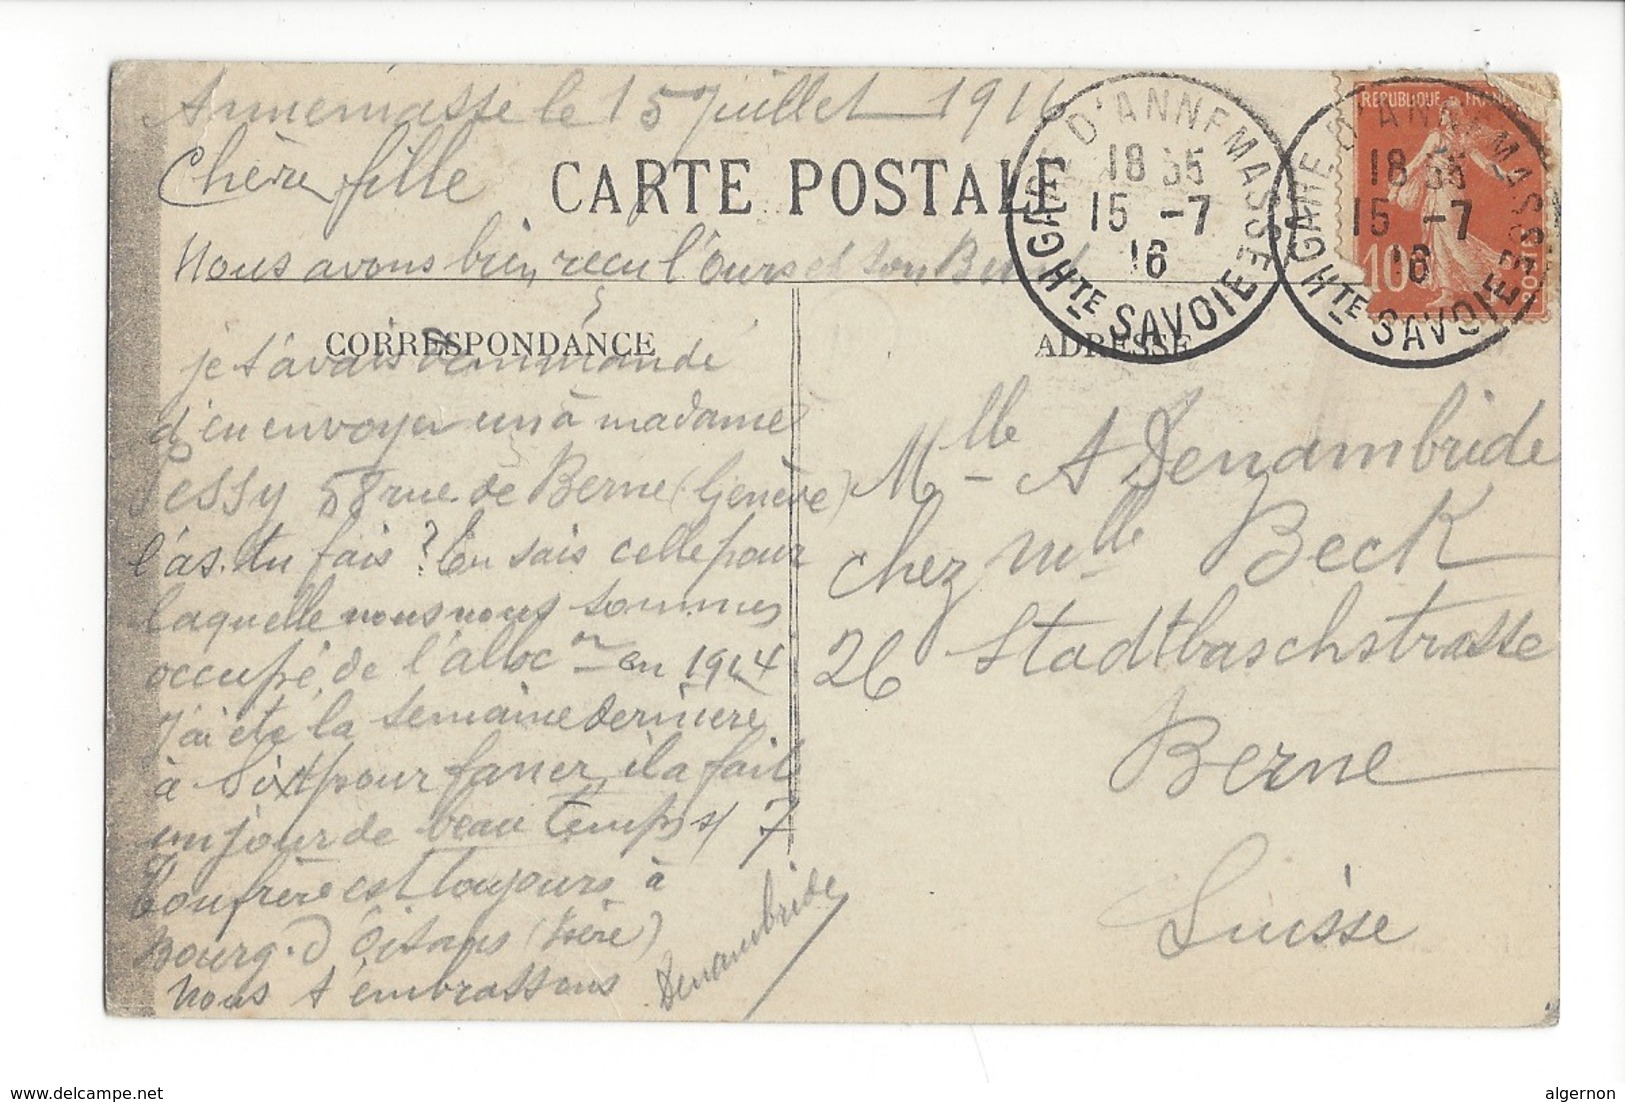 Annemasse le 15 Juillet 1916
Chère fille
CARTE POSTALE
Nous avons bien reçu l'Ours et son
CORRESPONDANCE
je t'avais Demmandé
d'en envoyer un à madame
Pessy 58 rue de Berne (Genève)
l'as-tu fais ? tu sais celle pour
laquelle nous nous sommes
occupé de l'alloc on en 1914
J'ai été la semaine dernière
à Sixt pour faner, il a fait
un jour de beau temps s/ 7
ton frère est toujours à
Bourg-d'Oisans (Isère)
Nous t'embrassons
Denambride
ADRESSE
Mlle A Denambride
chez Mlle Beck
26 Stadtbaschstrasse
Berne
Suisse
GARE D'ANNEMASSE
18 35
15 -7
16
HTE SAVOIE
GARE D'ANNEMASSE
18 35
15 -7
16
HTE SAVOIE
REPUBLIQUE FRANC
10
delcampe.net
algernon